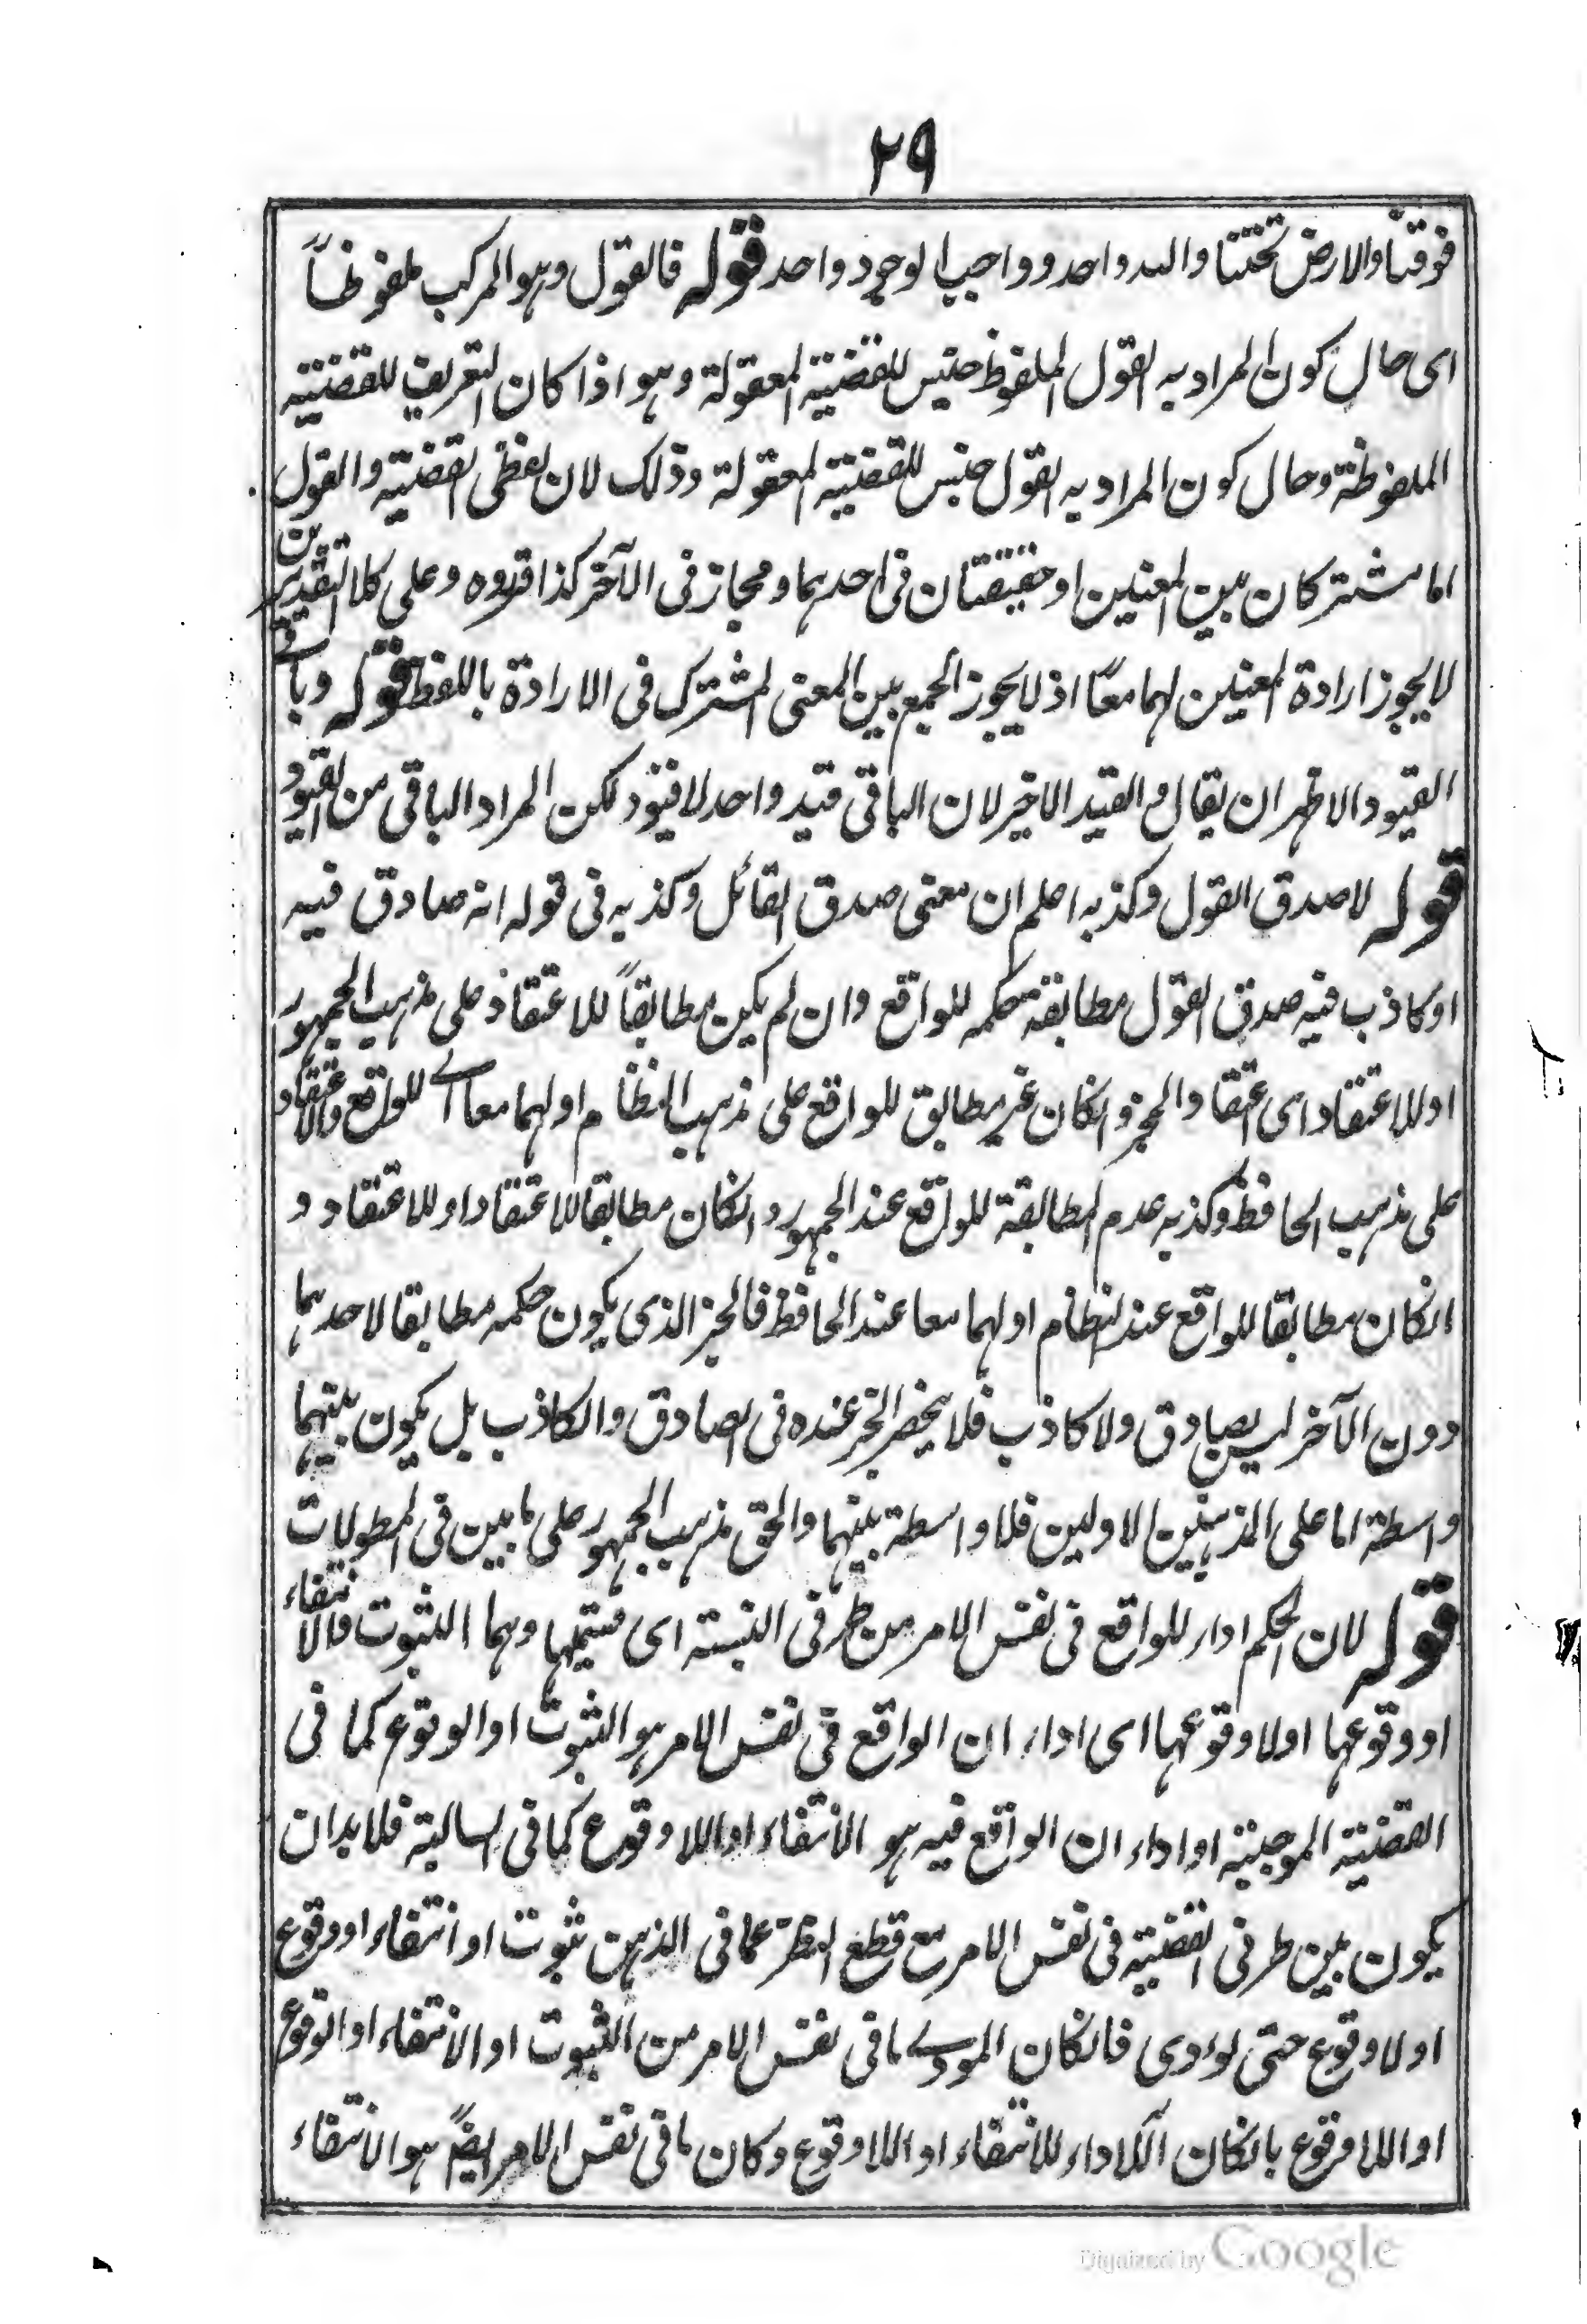 ٢٩
فوقنا والارض تحتنا والله واحد وواجب الوجود واحد قوله فالقول وهو المركب ملفوظاً
اى حال كون المراد به القول الملفوظ جنس للقضية المعقولة وهو اذا كان التعريف للقضية
الملفوظة وحال كون المراد به القول جنس للقضية المعقولة وذلك لان لفظى القضية والقول
اما مشتركان بين المعنيين او حقيقتان فى احدهما ومجاز فى الآخر كذا قروه وعلى كلا التقديرين
لا يجوز ارادة المعنيين لهما معًا اذ لا يجوز الجمع بين المعنى المشترك فى الارادة باللفظ قوله وباقے
القيود الاظهر ان يقال والقيد الاخير لان الباقى قيد واحد لا قيود لكن المراد الباقى من القيود
قوله لا صدق القول وكذبه اعلم ان معنى صدق القائل وكذبه فى قوله انه صادق فيه
او كاذب فيه صدق القول مطابقة حكمه للواقع وان لم يكن مطابقاً للاعتقاد على مذهب الجمهور
او للاعتقاد اى اعتقاد المخبر وانكان غير مطابق للواقع على مذهب النظام او لهما معا اے للواقع والاعتقاد
على مذهب الحافظ وكذبه عدم المطابقة للواقع عند الجمهور وانكان مطابقا للاعتقاد او للاعتقاد و
انكان مطابقا للواقع عند النظام او لهما معا عند الحافظ فالخبر الذى يكون حكمه مطابقا لاحدهما
دون الآخر ليس بصادق ولا كاذب فلا ينحصر الخبر عنده فى الصادق والكاذب بل يكون بينهما
واسطة اما على المذهبين الاولين فلا واسطة بينهما والحق مذهب الجمهور على ما بين فى المطولات
قوله لان الحكم اداء للواقع فى نفس الامر من طرفى النسبة اى قسميها وهما الثبوت والانتفاء
او وقوعها او لا وقوعها اى اداء ان الواقع فى نفس الامر هو الثبوت او الوقوع كما فى
القضية الموجبة او اداء ان الواقع فيه هو الانتفاء او اللا وقوع كما فى السالبة فلا بد ان
يكون بين طرفى القضية فى نفس الامر مع قطع النظر عما فى الذهن ثبوت او انتفاء او وقوع
او لا وقوع حتى يؤدى فانكان المودے ما فى نفس الامر من الثبوت او الانتفاء او الوقوع
او اللا وقوع بانكان الاداء للانتفاء او اللا وقوع وكان ما فى نفس الامر ايضً هو الانتفاء
Digitized by Google